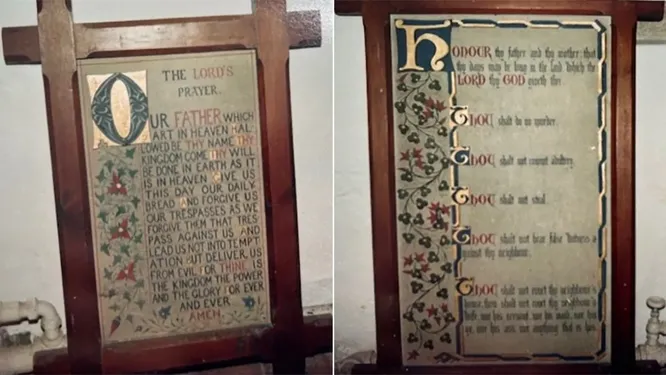 THE LORD'S
PRAYER.
OUR FATHER WHICH
ART IN HEAVEN HAL
LOWED BE THY NAME THY
KINGDOM COME THY WILL
BE DONE IN EARTH AS IT
IS IN HEAVEN GIVE US
THIS DAY OUR DAILY
BREAD AND FORGIVE US
OUR TRESPASSES AS WE
FORGIVE THEM THAT TRES
PASS AGAINST US AND
LEAD US NOT INTO TEMPT
ATION BUT DELIVER US
FROM EVIL FOR THINE IS
THE KINGDOM THE POWER
AND THE GLORY FOR EVER
AND EVER
AMEN.
HONOUR thy father and thy mother, that
thy days may be long in the land which the
LORD thy GOD giveth thee.
Thou shalt do no murder.
Thou shalt not commit adultery.
Thou shalt not steal.
Thou shalt not bear false witness a
gainst thy neighbour.
Thou shalt not covet thy neighbour's
house, thou shalt not covet thy neighbour's
wife, nor his servant, nor his maid, nor his
ox, nor his ass, nor anything that is his.